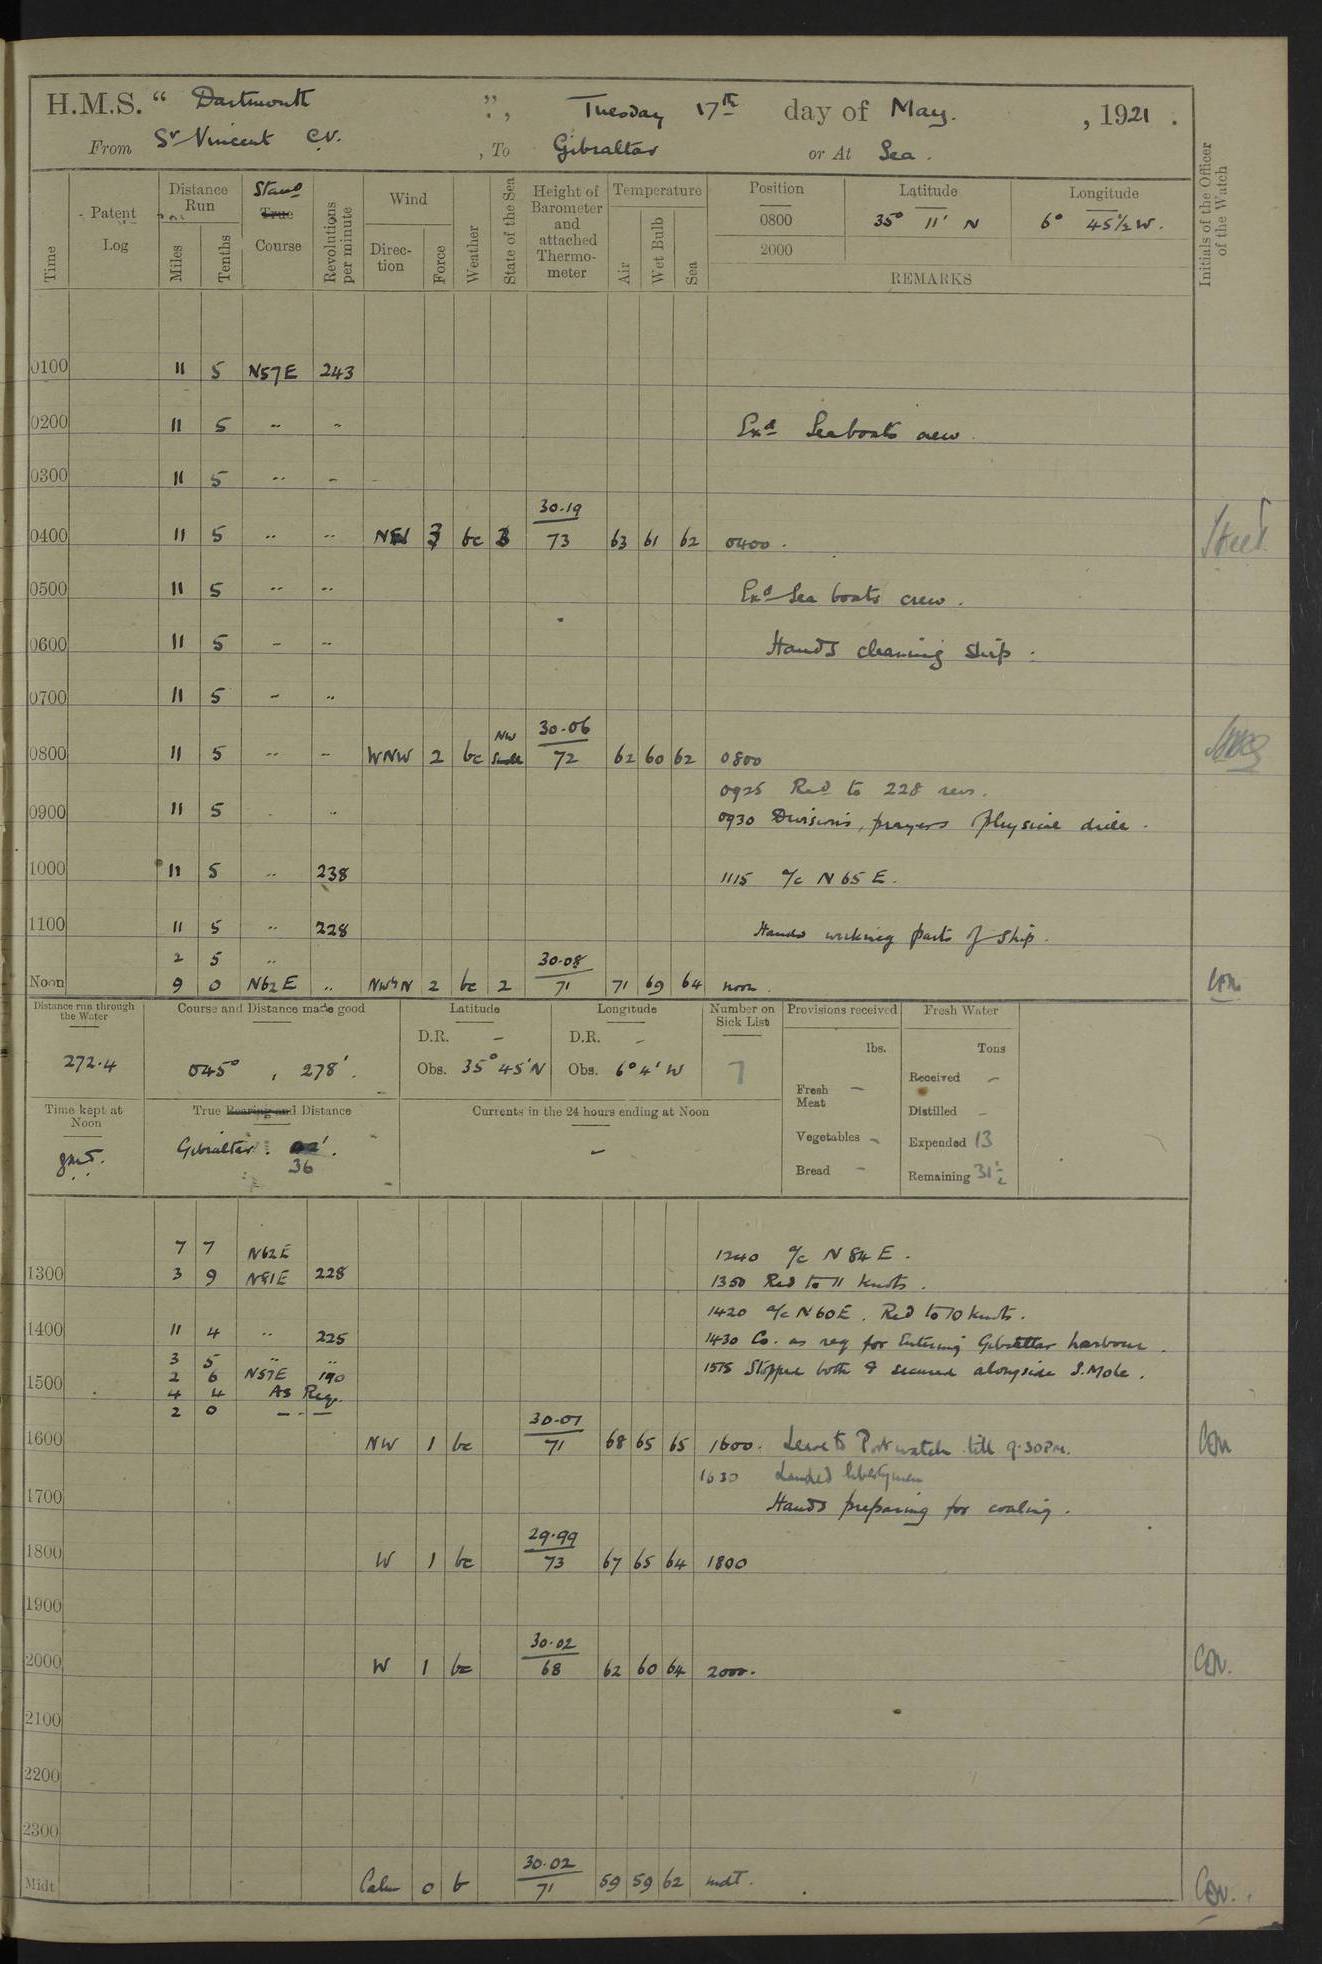 H.M.S. “ Dartmouth ”, Tuesday 17th day of May. , 1921 .
From St Vincent C.V. , To Gibraltar or At Sea .
Time
Patent Log
Distance Run
Miles
Tenths
Stand
True
Course
Revolutions per minute
Wind
Direc-tion
Force
Weather
State of the Sea
Height of Barometer and attached Thermo-meter
Temperature
Air
Wet Bulb
Sea
Position Latitude Longitude
0800 35° 11' N 6° 45½ W.
2000
REMARKS
Initials of the Officer of the Watch
0100 11 5 N57E 243
0200 11 5 " " Exd Seaboats crew
0300 11 5 " "
30.19
0400 11 5 " " 3 bc 3 73 63 61 62 0400 .
0500 11 5 " " Exd Sea boats crew .
0600 11 5 " " Hands cleaning ship .
0700 11 5 " "
NW 30.06
0800 11 5 " " WNW 2 bc 72 62 60 62 0800
0925 Red to 228 revs.
0900 11 5 " " 0930 Divisions, prayers Physical drill .
1000 11 5 " 238 1115 a/c N 65 E.
1100 11 5 " 228 Hands working parts of ship .
2 5 " 30.08
Noon 9 0 N62E " NW'N 2 bc 2 71 71 69 64 noon .
Distance run through the Water
272.4
Course and Distance made good
045° , 278' .
Latitude
D.R. -
Obs. 35° 45' N
Longitude
D.R. -
Obs. 6° 4' W
Number on Sick List
7
Provisions received
lbs.
Fresh Meat -
Vegetables -
Bread -
Fresh Water
Tons
Received -
Distilled -
Expended 13
Remaining 31½
Time kept at Noon
gmt.
True Bearing and Distance
Gibraltar .
36
Currents in the 24 hours ending at Noon
-
7 7 N62E 1240 a/c N 84 E .
1300 3 9 N81E 228 1350 Red to 11 knots .
1420 a/c N 60 E . Red to 10 knots .
1400 11 4 " 225 1430 Co. as req for Entering Gibraltar harbour .
3 5 " " 1515 Stopped both & secured alongside S. Mole .
1500 2 6 N57E 190
4 4 As Req.
2 0 - - - 30.01
1600 NW 1 bc 71 68 65 65 1600 . Leave to Port watch till 9.30 PM.
1630 Landed libertymen
1700 Hands preparing for coaling .
29.99
1800 W 1 bc 73 67 65 64 1800
1900
30.02
2000 W 1 bc 68 62 60 64 2000 .
2100
2200
2300
30.02
Midt Calm 0 b 71 59 59 62 mdt .